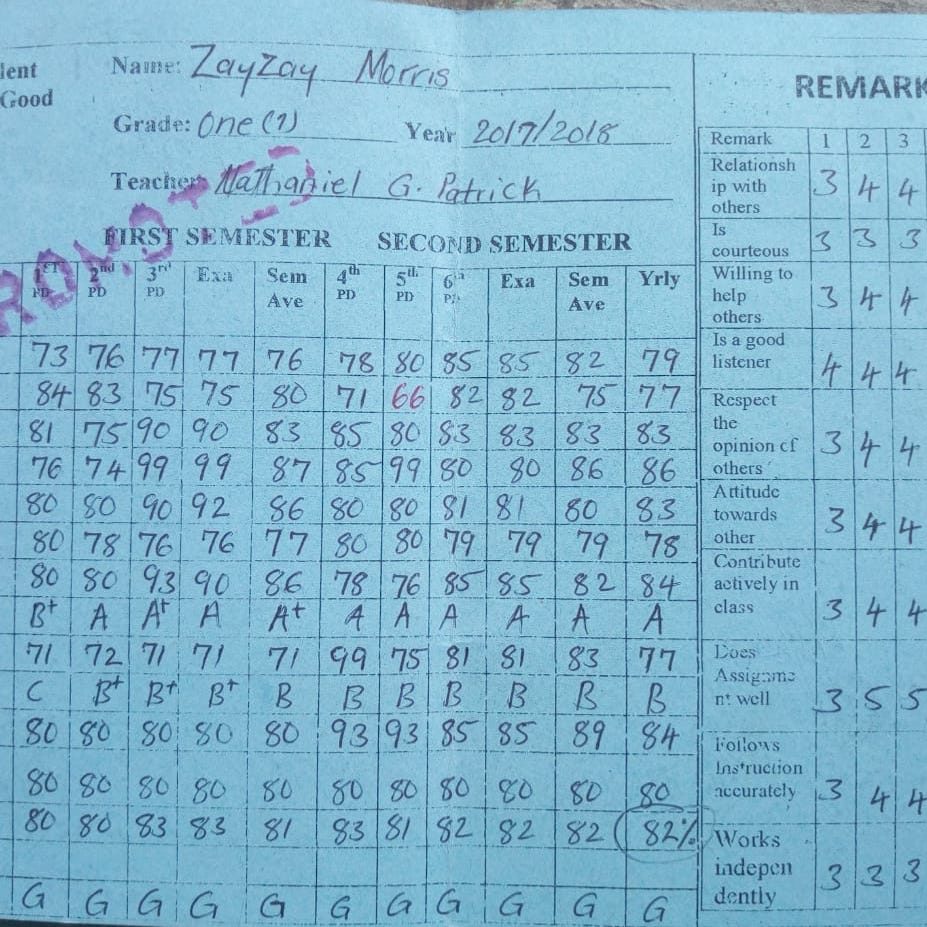 lent
Good
Name: ZayZay Morris
Grade: One (1) Year 2017/2018
Teacher: Nathaniel G. Patrick
FIRST SEMESTER SECOND SEMESTER
1ST PD 2nd PD 3rd PD Exa Sem Ave 4th PD 5th PD 6th PD Exa Sem Ave Yrly
73 76 77 77 76 78 80 85 85 82 79
84 83 75 75 80 71 66 82 82 75 77
81 75 90 90 83 85 80 83 83 83 83
76 74 99 99 87 85 99 80 80 86 86
80 80 90 92 86 80 80 81 81 80 83
80 78 76 76 77 80 80 79 79 79 78
80 80 93 90 86 78 76 85 85 82 84
B+ A A+ A A+ A A A A A A
71 72 71 71 71 99 75 81 81 83 77
C B+ B+ B+ B B B B B B B
80 80 80 80 80 93 93 85 85 89 84
80 80 80 80 80 80 80 80 80 80 80
80 80 83 83 81 83 81 82 82 82 82%
G G G G G G G G G G G
REMARK
Remark 1 2 3
Relationsh
ip with 3 4 4
others
Is
courteous 3 3 3
Willing to
help 3 4 4
others
Is a good
listener 4 4 4
Respect
the
opinion of 3 4 4
others
Attitude
towards 3 4 4
other
Contribute
actively in
class 3 4 4
Does
Assignme
nt well 3 5 5
Follows
Instruction
accurately 3 4 4
Works
indepen 3 3 3
dently